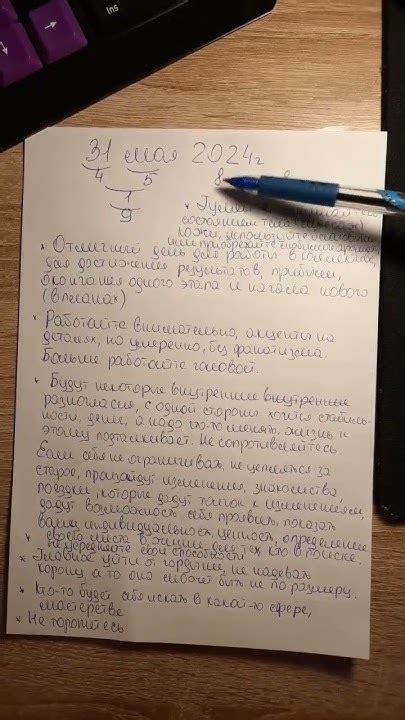 Ins
31 мая 2024г
4 5
1
9
8
* Отличный день для работы в коллективе,
для достижения результатов, прибыли,
окончания одного этапа и начала нового
(в планах)
* Работайте внимательно, акценты на
деталях, но умеренно, без фанатизма.
Больше работайте головой.
* Будут некоторые внутренние внутренние
разногласия, с одной стороны хочется стабиль-
ности, денег, а надо что-то менять, жизнь к
этому подталкивает. Не сопротивляйтесь
Если себя не ограничивать, не цепляться за
старое, произойдут изменения, знакомства,
поездки, которые дадут толчок к изменениям,
дадут возможность себя проявить, показать
вашу индивидуальность, ценность, определение
своего места в жизни для тех кто в поиске.
* не усредняйте свои способности
* Главное уйти от гордыни, не надевать
корону а то она может быть не по размеру.
* Кто-то будет себя искать в какой-то сфере,
мастерстве
* Не торопитесь